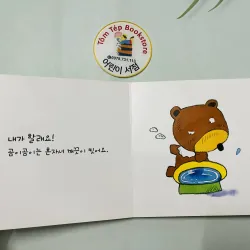 Tôm Tép Bookstore
어린이 서점
내가 할래요!
곰이곰이는 혼자서 깨끗이 씻어요.